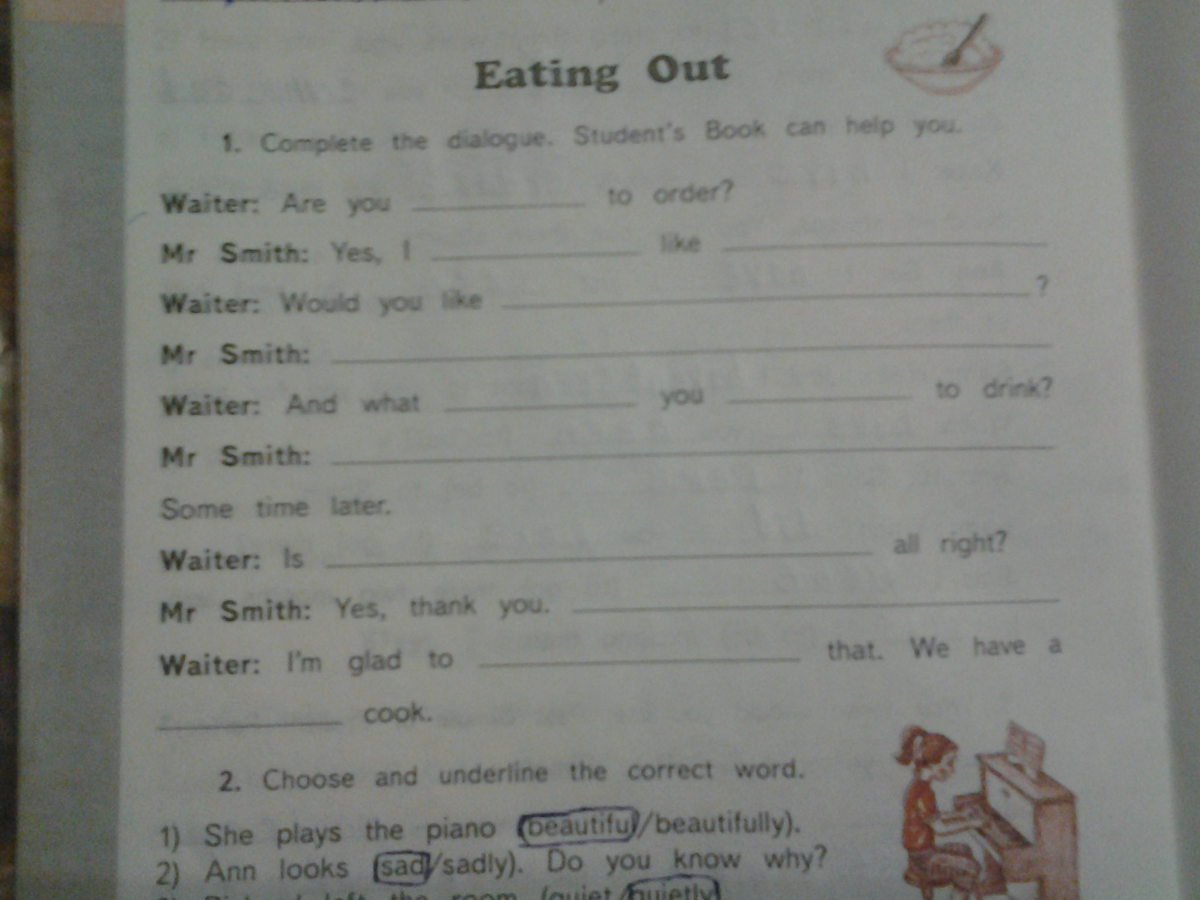 Eating Out
1. Complete the dialogue. Student's Book can help you.
Waiter: Are you ________ to order?
Mr Smith: Yes, I ________ like ________
Waiter: Would you like ________?
Mr Smith: ________
Waiter: And what ________ you ________ to drink?
Mr Smith: ________
Some time later.
Waiter: Is ________ all right?
Mr Smith: Yes, thank you. ________
Waiter: I'm glad to ________ that. We have a
________ cook.
2. Choose and underline the correct word.
1) She plays the piano (beautiful/beautifully).
2) Ann looks (sad/sadly). Do you know why?
left the room (quiet/quietly)